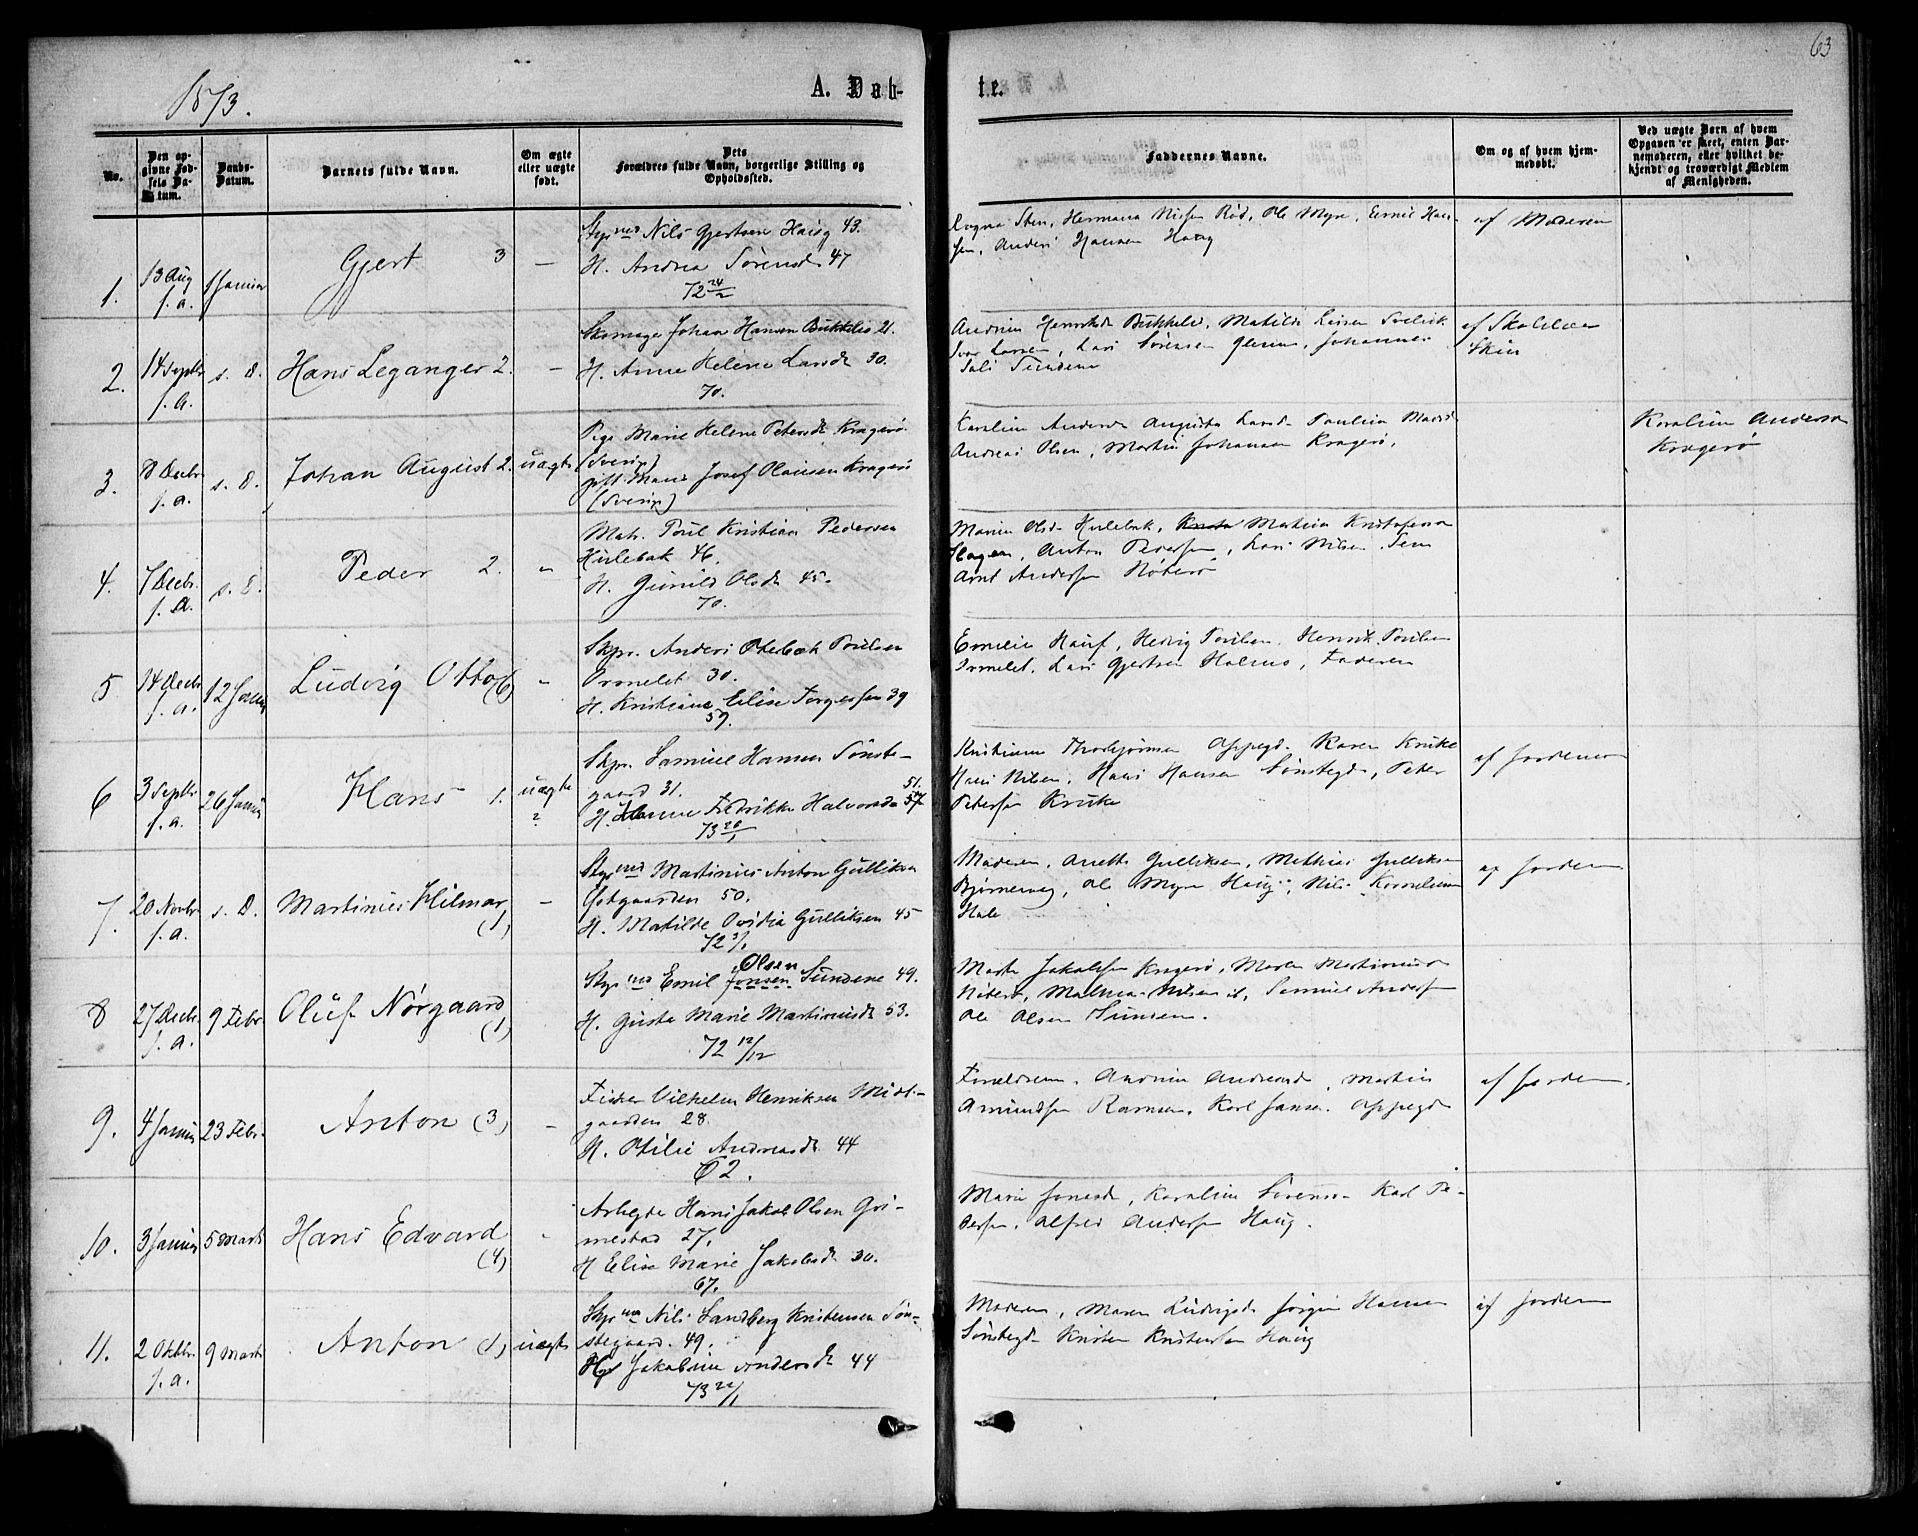 1873.
A. Døb-
te.
63
No.
Den op-
givne Fød-
sels Da-
tum.
Daabs-
Datum.
Barnets fulde Navn.
Om ægte
eller uægte
født.
Dets
Forældres fulde Navn, borgerlige Stilling og
Opholdssted.
Faddernes Navne.
Om og af hvem hjem-
medøbt.
Ved uægte Børn af hvem
Opgaven er skeet, enten Bar-
nemoderen, eller hvilket be-
kjendt og troværdigt Medlem
af Menigheden.
1.
13 Aug
f. a.
1 Januar
Gjert 3
—
Styrmd Nils Gjertsen Haug 43.
H. Andrea Sørensd. 47
72 24/2
Sten, Hermana Nilsen Rød, Ole Myre, Emil Han-
sen, Anders Hansen Haug
af Moderen
2.
14 Septbr
f. A.
s. D.
Hans Leganger 2.
—
Skomager Johan Hansen Bukkelie 21.
H. Anne Helene Larsd. 30.
70.
Bukkelie, Matilde Larsen
Ivar Larsen, Lars Sørensen, Johannes
Sundene
af Skolelær
3.
8 Decbr
f. a.
s. D.
Johan August 2.
uægte
Pige Marie Helene Petersd. Kragerø
(Sverig)
gift Mand Josef Olausen Kragerø
(Sverig)
Karoline Andersd. Augusta Larsd. Paulina
Andreas Olsen, Martin Johansen Kragerø.
Karoline Anderse
Kragerø
4.
7 Decbr.
f. A.
s. D.
Peder 2.
"
Matr. Poul Kristian Pedersen
Hulebak 46.
H. Gunild Olsd. 45.
70.
Maren Olsd. Hulebak, Mathia Kristofersen
Hagen, Anton Pedersen, Lars Nilsen,
Arnt Andersen Nøterø
5
14 Decbr.
f. a.
12 Januar
Ludvig Otto (6)
"
Skpr. Anders Otebeck Poulsen
Ormelet 30.
H. Kristiane Elise Torgersen 39
59.
Emilie Hauf, Hedvig Poulsen, Henrik Poulsen
Ormelet, Lars Gjertsen Holmo, Faderen
6
3 Septbr
f. a.
26 Januar
Hans 1.
uægte
?
Skpr. Samuel Hansen Sønste-
gaard 31. 51.
H. Hanne Fredrikke Halvorsd.
73 26/1
Kristiane Thorbjørnsen Oppegd. Karen Kruke
Hans Nilsen, Hans Hansen Sønstegd., Peter
Petersen Kruke
af Jordemor
7.
20 Novbr
f. a.
s. D.
Martinius Hilmar
(1)
—
Styrmd Martinius Anton Gulliksen
Østgaarden 50.
H. Matilde Ovidia Gulliksen 45
72 3/1
Moderen, Anette Gulliksen, Mathias Gulliksen
Bjørnevåg, Ole Myre Haug, Nils Kornelius
af Jordem
8
27 Decbr.
f. a.
9 Febr.
Oluf Nørgaard
(1)
Olsen
Styrmd Emil Jonsen Sundene 49.
H. Gusta Marie Martinusd. 53.
72 12/12
Marte Jakobsen Kragerø, Maren Martinusd
Nøterø, Malena Nilsen, Samuel Anders
Ole Olsen Sundene.
9.
4 Januar
23 Febr.
Anton (3)
—
Fisker Vilhelm Henriksen Midt-
gaarden 28.
H. Otilie Andreasd. 44
62.
Forældrene, Andrine Andreasd., Martin
Amundsen Ramsen, Karl Jansen Oppegd
af Jordem.
10.
3 Januar
5 Marts
Hans Edvard
(4)
"
Arbeider Hans Jakob Olsen Gri-
mestad 27.
H Elise Marie Jakobsd. 30.
67.
Marie Jonasd., Karoline Sørensen Karl Pe-
dersen, Alfred Andersen Haug.
11.
2 Oktbr.
f. a.
9 Marts
Anton (1)
uægte
Styrmd Nils Sandberg Kristensen Søn-
stegaard. 49.
Jakobine Andersd. 44
73 22/1
Moderen, Maren Ludvigsd. Jørgen Hansen
Sønstegd. Kristen Kristensen Haug
af Jordem